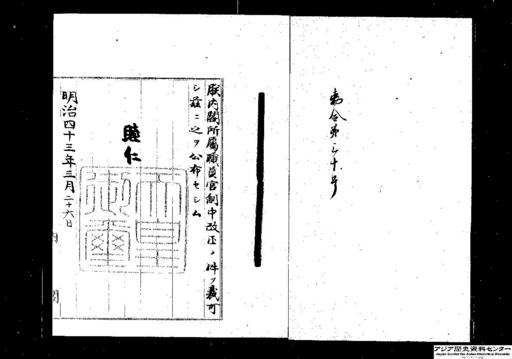 勅令第三十号
朕内閣所属職員官制中改正ノ件ヲ裁可
シ茲ニ之ヲ公布セシム
睦仁
天皇御璽
明治四十三年三月二十六日
内閣
アジア歴史資料センター
Japan Center for Asian Historical Records